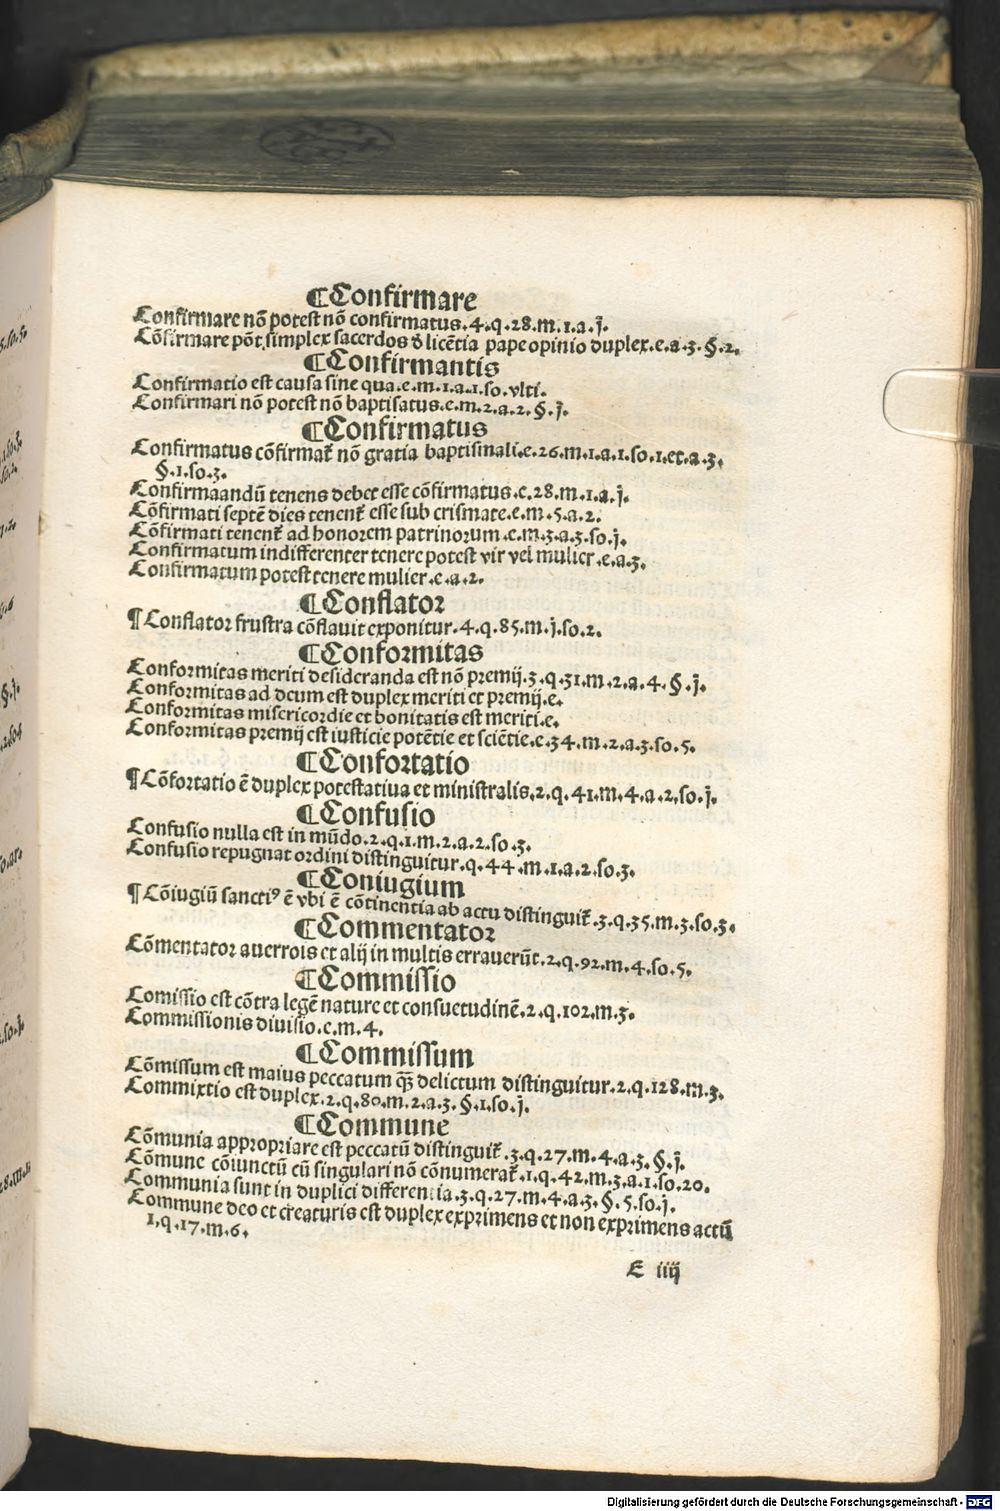 ¶Confirmare
Confirmare nō potest nō confirmatus.4.q.28.m.1.a.j.
Cōfirmare pōt simplex sacerdos d licētia pape opinio duplex.e.a.3.§.2.
¶Confirmantis
Confirmatio est causa sine qua.e.m.1.a.1.so.vlti.
Confirmari nō potest nō baptisatus.e.m.2.a.2.§.j.
¶Confirmatus
Confirmatus cōfirmat̄ nō gratia baptismali.e.26.m.1.a.1.so.1.et.a.3.
§.1.so.3.
Confirmaandū tenens debet esse cōfirmatus.e.28.m.1.a.j.
Cōfirmati septē dies tenent̄ esse sub crismate.e.m.5.a.2.
Cōfirmati tenent̄ ad honorem patrinorum.e.m.3.a.3.so.j.
Confirmatum indifferenter tenere potest vir vel mulier.e.a.3.
Confirmatum potest tenere mulier.e.a.2.
¶Conflator
¶Conflator frustra cōflauit exponitur.4.q.85.m.j.so.2.
¶Conformitas
Conformitas meriti desideranda est nō premij.3.q.31.m.2.a.4.§.j.
Conformitas ad deum est duplex meriti et premij.e.
Conformitas misericordie et bonitatis est meriti.e.
Conformitas premij est iusticie potētie et sciētie.e.34.m.2.a.3.so.5.
¶Confortatio
¶Cōfortatio ē duplex potestatiua et ministralis.2.q.41.m.4.a.2.so.j.
¶Confusio
Confusio nulla est in mūdo.2.q.1.m.2.a.2.so.3.
Confusio repugnat ordini distinguitur.q.44.m.1.a.2.so.3.
¶Coniugium
¶Cōiugiū sancti⁹ ē vbi ē cōtinentia ab actu distinguit̄.3.q.35.m.3.so.3.
¶Commentator
Cōmentator auerrois et alij in multis errauerūt.2.q.92.m.4.so.5.
¶Commissio
Comissio est cōtra legē nature et consuetudinē.2.q.102.m.3.
Commissionis diuisio.e.m.4.
¶Commissum
Cōmissum est maius peccatum q̄ȝ delictum distinguitur.2.q.128.m.3.
Commixtio est duplex.2.q.80.m.2.a.3.§.1.so.j.
¶Commune
Cōmunia appropriare est peccatū distinguit̄.3.q.27.m.4.a.3.§.j.
Cōmune cōiunctū cū singulari nō cōnumerat̄.1.q.42.m.3.a.1.so.20.
Communia sunt in duplici differentia.3.q.27.m.4.a.3.§.5.so.j.
Commune deo et creaturis est duplex exprimens et non exprimens actū
1.q.17.m.6.
E iiij
Digitalisierung gefördert durch die Deutsche Forschungsgemeinschaft - DFG